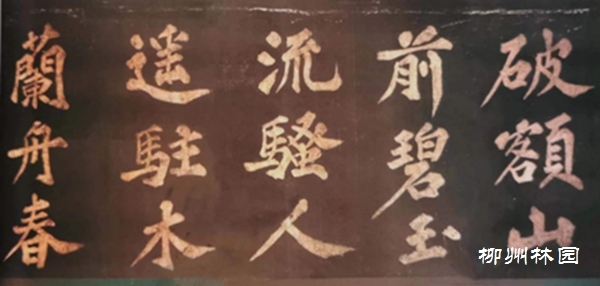 破額山
前碧玉
流騷人
遥駐木
蘭舟春
柳州林园